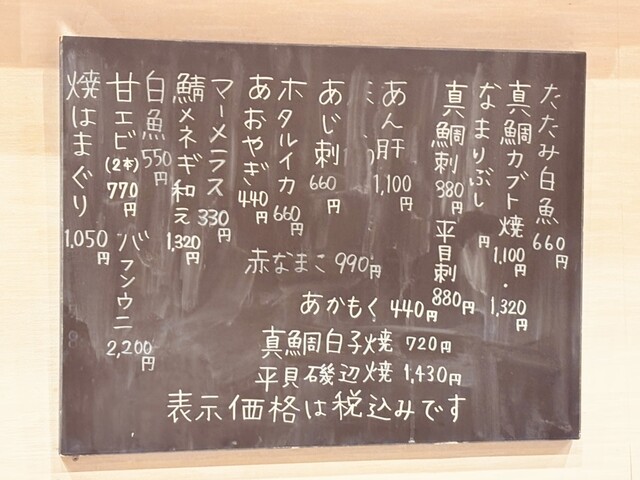 たたみ白魚 660円
真鯛カブト焼 1,100円・1,320円
なまりぶし 円
真鯛刺 880円
平貝刺 880円
あん肝 1,100円
あじ刺 660円
ホタルイカ 660円
あおやぎ 440円
マーメラス 330円
鯖メネギ和え 1,320円
白魚 550円
甘エビ(2本) 770円
バフンウニ 2,200円
焼はまぐり 1,050円
赤なまこ 990円
あかもく 440円
真鯛白子焼 720円
平貝磯辺焼 1,430円
表示価格は税込みです